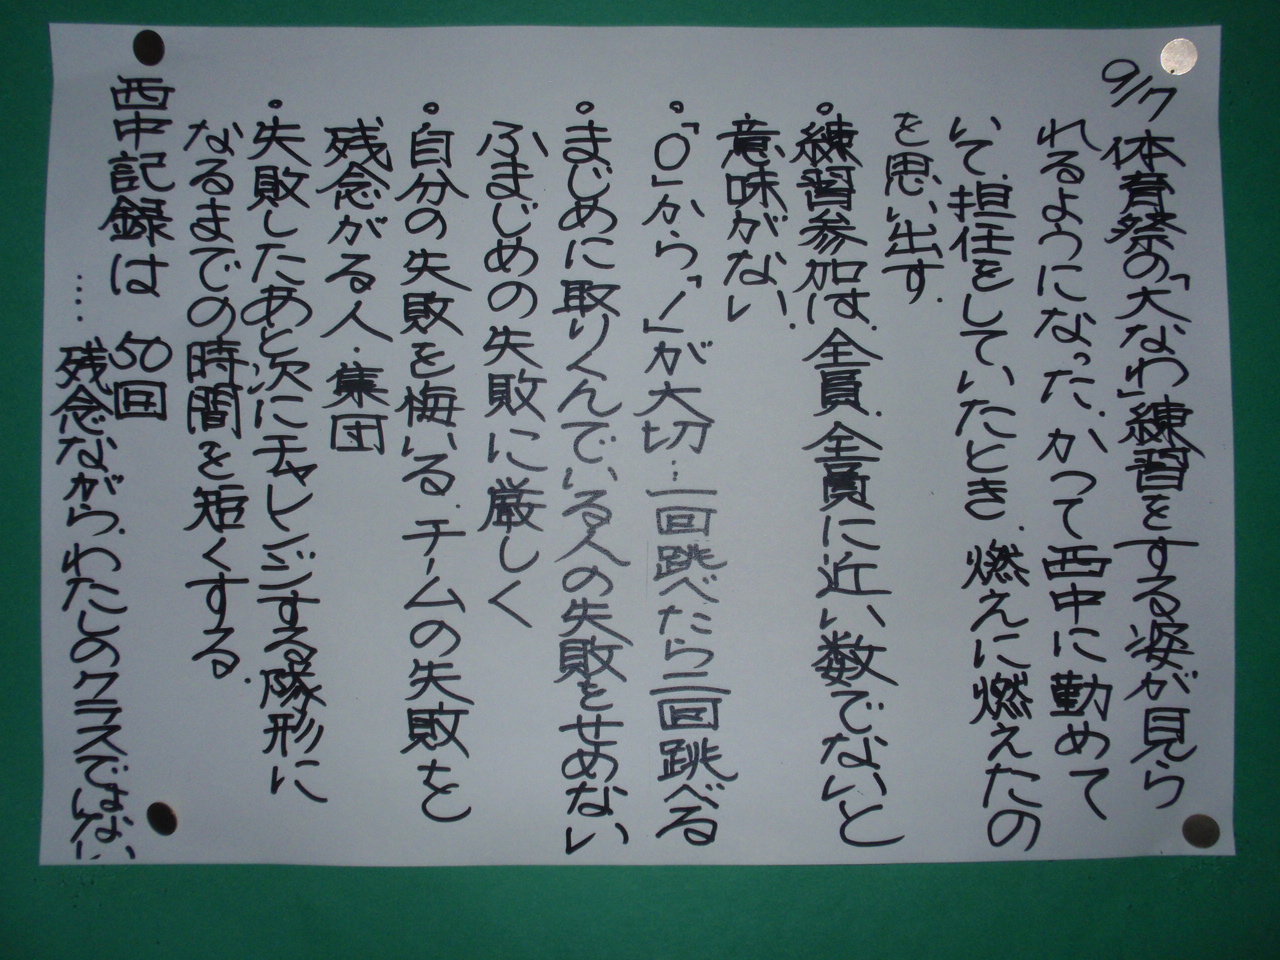 9/7 体育祭の「大なわ」練習をする姿が見ら
れるようになった.かつて西中に勤めて
いて.担任をしていたとき.燃えに燃えたの
を思い出す.
・練習参加は.全員.全員に近い数でないと
意味がない.
・「0」から「1」が大切…一回跳べたら二回跳べる
・まじめに取りくんでいる人の失敗をせめない
ふまじめの失敗に厳しく
・自分の失敗を悔いる.チームの失敗を
残念がる人.集団
・失敗したあと次にチャレンジする隊形に
なるまでの時間を短くする.
西中記録は 50回
……残念ながら.わたしのクラスではない